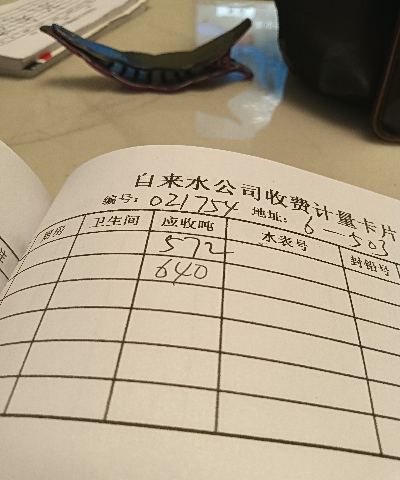 自来水公司收费计量卡片
编号: 021754 地址: 6-503
卫生间 应收吨 水表号 封铅号
572
640